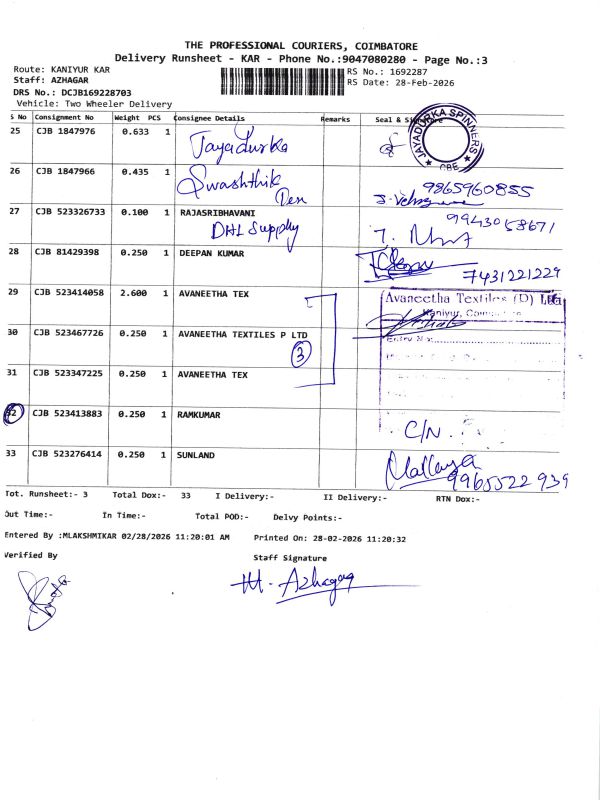 THE PROFESSIONAL COURIERS, COIMBATORE
Delivery Runsheet - KAR - Phone No.:9047080280 - Page No.:3
Route: KANIYUR KAR
RS No.: 1692287
Staff: AZHAGAR
RS Date: 28-Feb-2026
DRS No.: DCJB169228703
Vehicle: Two Wheeler Delivery
S No Consignment No Weight PCS Consignee Details Remarks Seal & Signature
25 CJB 1847976 0.633 1 Jayadurka
JAYADURKA SPINNERS CBE
26 CJB 1847966 0.435 1 Swashthik Tex
9865960855
27 CJB 523326733 0.100 1 RAJASRIBHAVANI
DHL Supply
9943058671
28 CJB 81429398 0.250 1 DEEPAN KUMAR
7431221229
29 CJB 523414058 2.600 1 AVANEETHA TEX
Avaneetha Textiles (P) Ltd
Kaniyur, Coimbatore
30 CJB 523467726 0.250 1 AVANEETHA TEXTILES P LTD
3
Entry No
31 CJB 523347225 0.250 1 AVANEETHA TEX
32 CJB 523413883 0.250 1 RAMKUMAR
C/N
33 CJB 523276414 0.250 1 SUNLAND
9965522939
Tot. Runsheet:- 3 Total Dox:- 33 I Delivery:- II Delivery:- RTN Dox:-
Out Time:- In Time:- Total POD:- Delvy Points:-
Entered By :MLAKSHMIKAR 02/28/2026 11:20:01 AM Printed On: 28-02-2026 11:20:32
Verified By Staff Signature
M. Azhagar